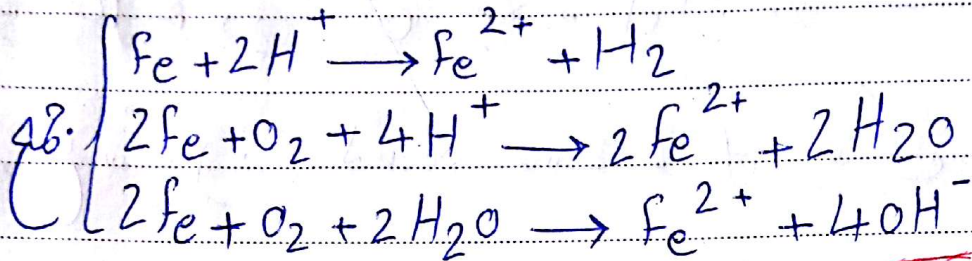 Fe + 2H⁺ → Fe²⁺ + H₂
2Fe + O₂ + 4H⁺ → 2Fe²⁺ + 2H₂O
2Fe + O₂ + 2H₂O → Fe²⁺ + 4OH⁻